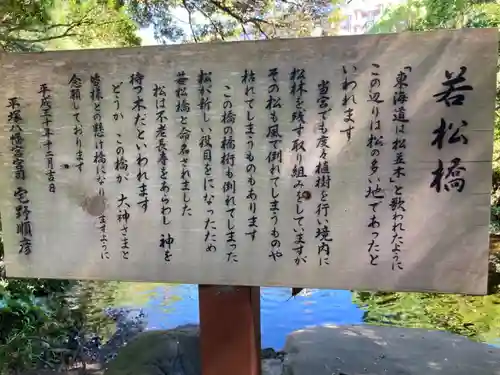 若松橋
「東海道は松並木」と歌われたように
この辺りは松の多い地であったと
いわれます
当宮でも度々植樹を行い境内に
松林を残す取り組みをしていますが
その松も風で倒れてしまうものや
枯れてしまうものもあります
この橋の橋桁も倒れてしまった
松が新しい役目をになったため
若松橋と命名されました
松は不老長寿をあらわし神を
待つ木だといわれます
どうかこの橋が大神さまと
皆様との懸け橋になりますように
念願しております
平成三十年十二月吉日
平塚八幡宮宮司 宅野順彦